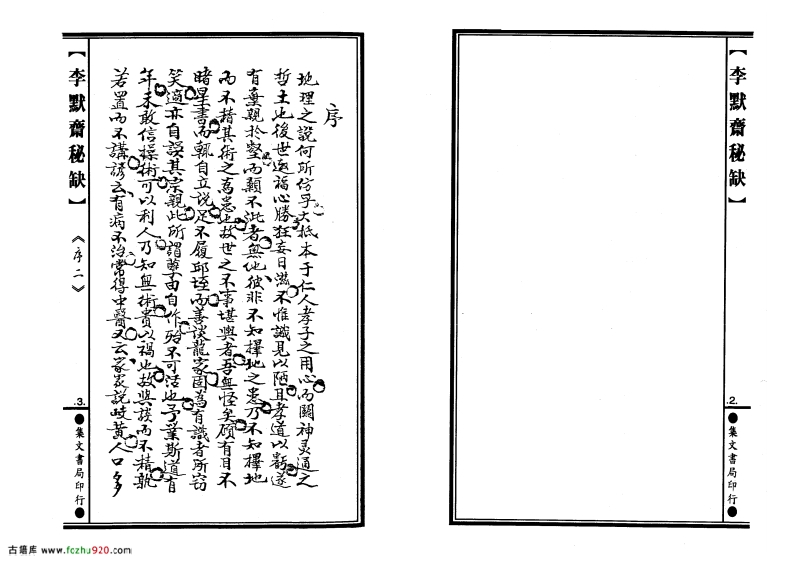 【李默齋秘缺】
.2.
●集文書局印行●
序
地理之說何所仿乎大抵本于仁人孝子之用心而闢神灵通之
哲士也後世邀福心勝狂妄日滋不惟識見以陋且孝道以虧遂
有棄親於壑而顯不泚者無他彼非不知擇地之患乃不知擇地
而不精其術之為患也故世之不事堪輿者吾無怪矣顧有目不
睹星書而輒自立說足不履邱垤而善談龍家固為有識者所窃
笑適亦自誤其宗親此所謂孽由自作殆不可活也予業斯道有
年未敢信操術可以利人乃知無術貴以禍也故與談而不精孰
若置而不講諺云有病不治常得中醫又云家家說岐黃人口多
【李默齋秘缺】
《序二》
.3.
●集文書局印行●
古籍库 www.fczhu920.com